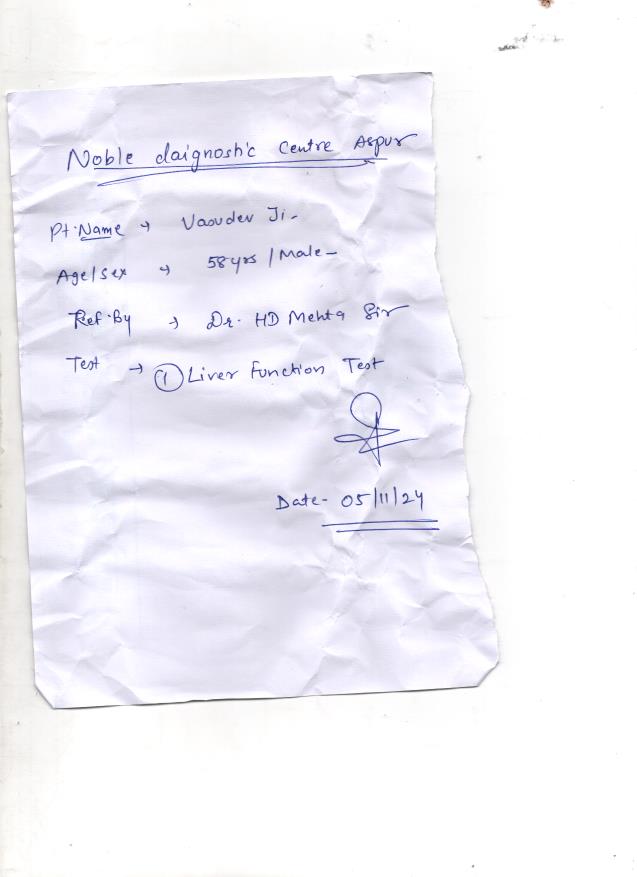 Noble daignostic Centre Aspur
Pt. Name → Vasudev Ji-
Age/Sex → 58 yrs / Male-
Ref. By → Dr. HD Mehta Sir
Test → ① Liver Function Test
Date- 05/11/24